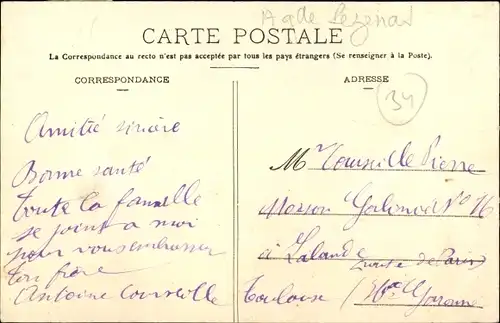 Agde Pezenas
CARTE POSTALE
La Correspondance au recto n'est pas acceptée par tous les pays étrangers (Se renseigner à la Poste).
CORRESPONDANCE
ADRESSE
34
Amitié sincère
Bonne santé
toute la famille
se joint a moi
pour vous embrasser
ton frère
Antoine Courveille
Mr Courveille Pierre
Maison Galinier No 16
à Lalande route de Paris
Toulouse (Hte Garonne